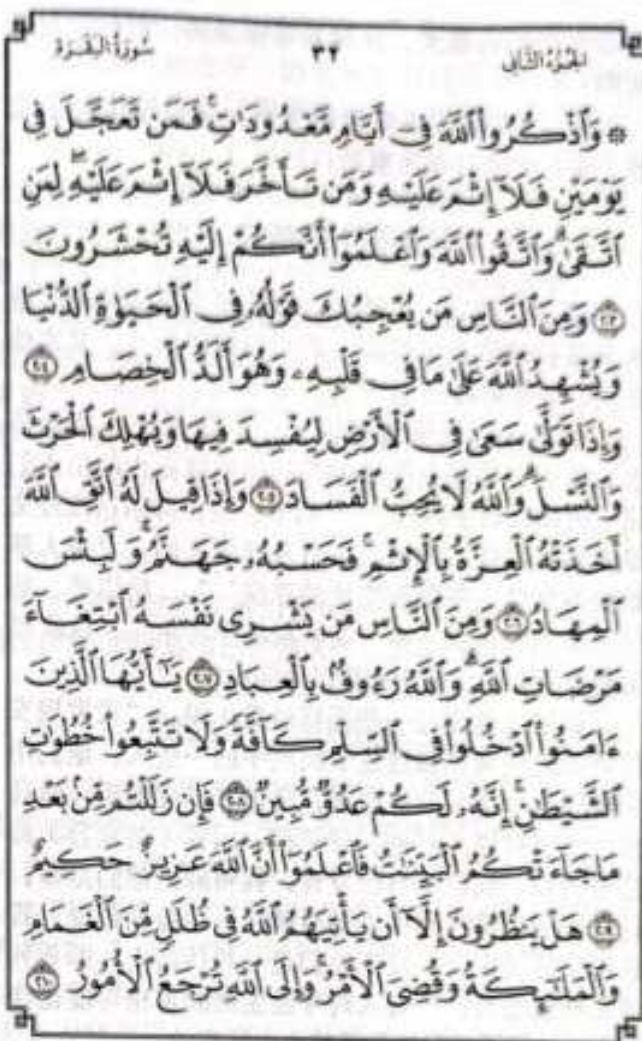 الجزء الثاني ٣٢ سورة البقرة
۞ وَٱذۡكُرُواْ ٱللَّهَ فِيٓ أَيَّامٖ مَّعۡدُودَٰتٖۚ فَمَن تَعَجَّلَ فِي
يَوۡمَيۡنِ فَلَآ إِثۡمَ عَلَيۡهِ وَمَن تَأَخَّرَ فَلَآ إِثۡمَ عَلَيۡهِۖ لِمَنِ
ٱتَّقَىٰۗ وَٱتَّقُواْ ٱللَّهَ وَٱعۡلَمُوٓاْ أَنَّكُمۡ إِلَيۡهِ تُحۡشَرُونَ
٢٠٣ وَمِنَ ٱلنَّاسِ مَن يُعۡجِبُكَ قَوۡلُهُۥ فِي ٱلۡحَيَوٰةِ ٱلدُّنۡيَا
وَيُشۡهِدُ ٱللَّهَ عَلَىٰ مَا فِي قَلۡبِهِۦ وَهُوَ أَلَدُّ ٱلۡخِصَامِ ٢٠٤
وَإِذَا تَوَلَّىٰ سَعَىٰ فِي ٱلۡأَرۡضِ لِيُفۡسِدَ فِيهَا وَيُهۡلِكَ ٱلۡحَرۡثَ
وَٱلنَّسۡلَۚ وَٱللَّهُ لَا يُحِبُّ ٱلۡفَسَادَ ٢٠٥ وَإِذَا قِيلَ لَهُ ٱتَّقِ ٱللَّهَ
أَخَذَتۡهُ ٱلۡعِزَّةُ بِٱلۡإِثۡمِۚ فَحَسۡبُهُۥ جَهَنَّمُۖ وَلَبِئۡسَ
ٱلۡمِهَادُ ٢٠٦ وَمِنَ ٱلنَّاسِ مَن يَشۡرِي نَفۡسَهُ ٱبۡتِغَآءَ
مَرۡضَاتِ ٱللَّهِۚ وَٱللَّهُ رَءُوفُۢ بِٱلۡعِبَادِ ٢٠٧ يَٰٓأَيُّهَا ٱلَّذِينَ
ءَامَنُواْ ٱدۡخُلُواْ فِي ٱلسِّلۡمِ كَآفَّةٗ وَلَا تَتَّبِعُواْ خُطُوَٰتِ
ٱلشَّيۡطَٰنِۚ إِنَّهُۥ لَكُمۡ عَدُوّٞ مُّبِينٞ ٢٠٨ فَإِن زَلَلۡتُم مِّنۢ بَعۡدِ
مَا جَآءَتۡكُمُ ٱلۡبَيِّنَٰتُ فَٱعۡلَمُوٓاْ أَنَّ ٱللَّهَ عَزِيزٌ حَكِيمٌ
٢٠٩ هَلۡ يَنظُرُونَ إِلَّآ أَن يَأۡتِيَهُمُ ٱللَّهُ فِي ظُلَلٖ مِّنَ ٱلۡغَمَامِ
وَٱلۡمَلَٰٓئِكَةُ وَقُضِيَ ٱلۡأَمۡرُۚ وَإِلَى ٱللَّهِ تُرۡجَعُ ٱلۡأُمُورُ ٢١٠